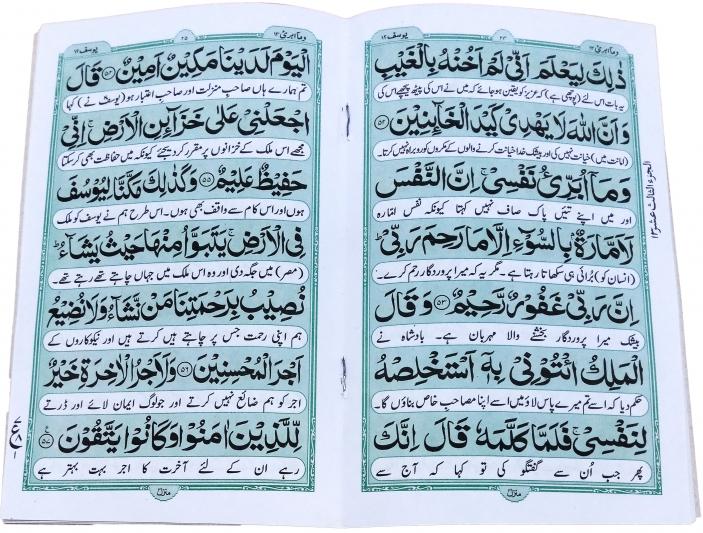 یوسف ۱۲
۲۴
وما ابرئ ۱۳
ذٰلِكَ لِيَعْلَمَ اَنِّيْ لَمْ اَخُنْهُ بِالْغَيْبِ
یہ بات اس لئے (پوچھی ہے) کہ عزیز کو یقین ہو جائے کہ میں نے اس کی پیٹھ پیچھے اس کی
وَاَنَّ اللّٰهَ لَا يَهْدِيْ كَيْدَ الْخَآئِنِيْنَ ۵۲
(امانت میں) خیانت نہیں کی اور بیشک خدا خیانت کرنے والوں کے مکروں کو روبراہ نہیں کرتا۔
وَمَآ اُبَرِّئُ نَفْسِيْ ۚ اِنَّ النَّفْسَ
اور میں اپنے تئیں پاک صاف نہیں کہتا کیونکہ نفس امّارہ
لَاَمَّارَةٌۢ بِالسُّوْٓءِ اِلَّا مَا رَحِمَ رَبِّيْ ۭ
(انسان کو) بُرائی ہی سکھاتا رہتا ہے۔ مگر یہ کہ میرا پروردگار رحم کرے۔
اِنَّ رَبِّيْ غَفُوْرٌ رَّحِيْمٌ ۵۳ وَقَالَ
بیشک میرا پروردگار بخشنے والا مہربان ہے۔ بادشاہ نے
الْمَلِكُ ائْتُوْنِيْ بِهٖٓ اَسْتَخْلِصْهُ
حکم دیا کہ اسے تم میرے پاس لاؤ میں اسے اپنا مصاحب خاص بناؤں گا۔
لِنَفْسِيْ ۚ فَلَمَّا كَلَّمَهٗ قَالَ اِنَّكَ
پھر جب اُن سے گفتگو کی تو کہا کہ آج سے
منزل
الجزء الثالث عشر ۱۳
یوسف ۱۲
۲۵
وما ابرئ ۱۳
الْيَوْمَ لَدَيْنَا مَكِيْنٌ اَمِيْنٌ ۵۴ قَالَ
تم ہمارے ہاں صاحب منزلت اور صاحب اعتبار ہو (یوسف نے) کہا
اجْعَلْنِيْ عَلٰى خَزَآئِنِ الْاَرْضِ ۚ اِنِّيْ
مجھے اس ملک کے خزانوں پر مقرر کر دیجئے کیونکہ میں حفاظت بھی کرسکتا
حَفِيْظٌ عَلِيْمٌ ۵۵ وَكَذٰلِكَ مَكَّنَّا لِيُوْسُفَ
ہوں اور اس کام سے واقف بھی ہوں۔ اس طرح ہم نے یوسف کو ملک
فِي الْاَرْضِ ۚ يَتَبَوَّاُ مِنْهَا حَيْثُ يَشَآءُ ۭ
(مصر) میں جگہ دی اور وہ اس ملک میں جہاں چاہتے تھے رہتے تھے۔
نُصِيْبُ بِرَحْمَتِنَا مَنْ نَّشَآءُ وَلَا نُضِيْعُ
ہم اپنی رحمت جس پر چاہتے ہیں کرتے ہیں اور نیکوکاروں کے
اَجْرَ الْمُحْسِنِيْنَ ۵۶ وَلَاَجْرُ الْاٰخِرَةِ خَيْرٌ
اجر کو ہم ضائع نہیں کرتے اور جو لوگ ایمان لائے اور ڈرتے
لِّلَّذِيْنَ اٰمَنُوْا وَكَانُوْا يَتَّقُوْنَ ۵۷
رہے ان کے لئے آخرت کا اجر بہت بہتر ہے
منزل